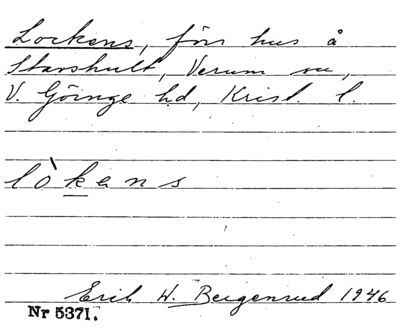 Lockens, förr hus å
Starshult, Verum sn,
V. Göinge hd, Krist. l.
lòkens
Erik W. Bergenrud 1946
Nr 5371.